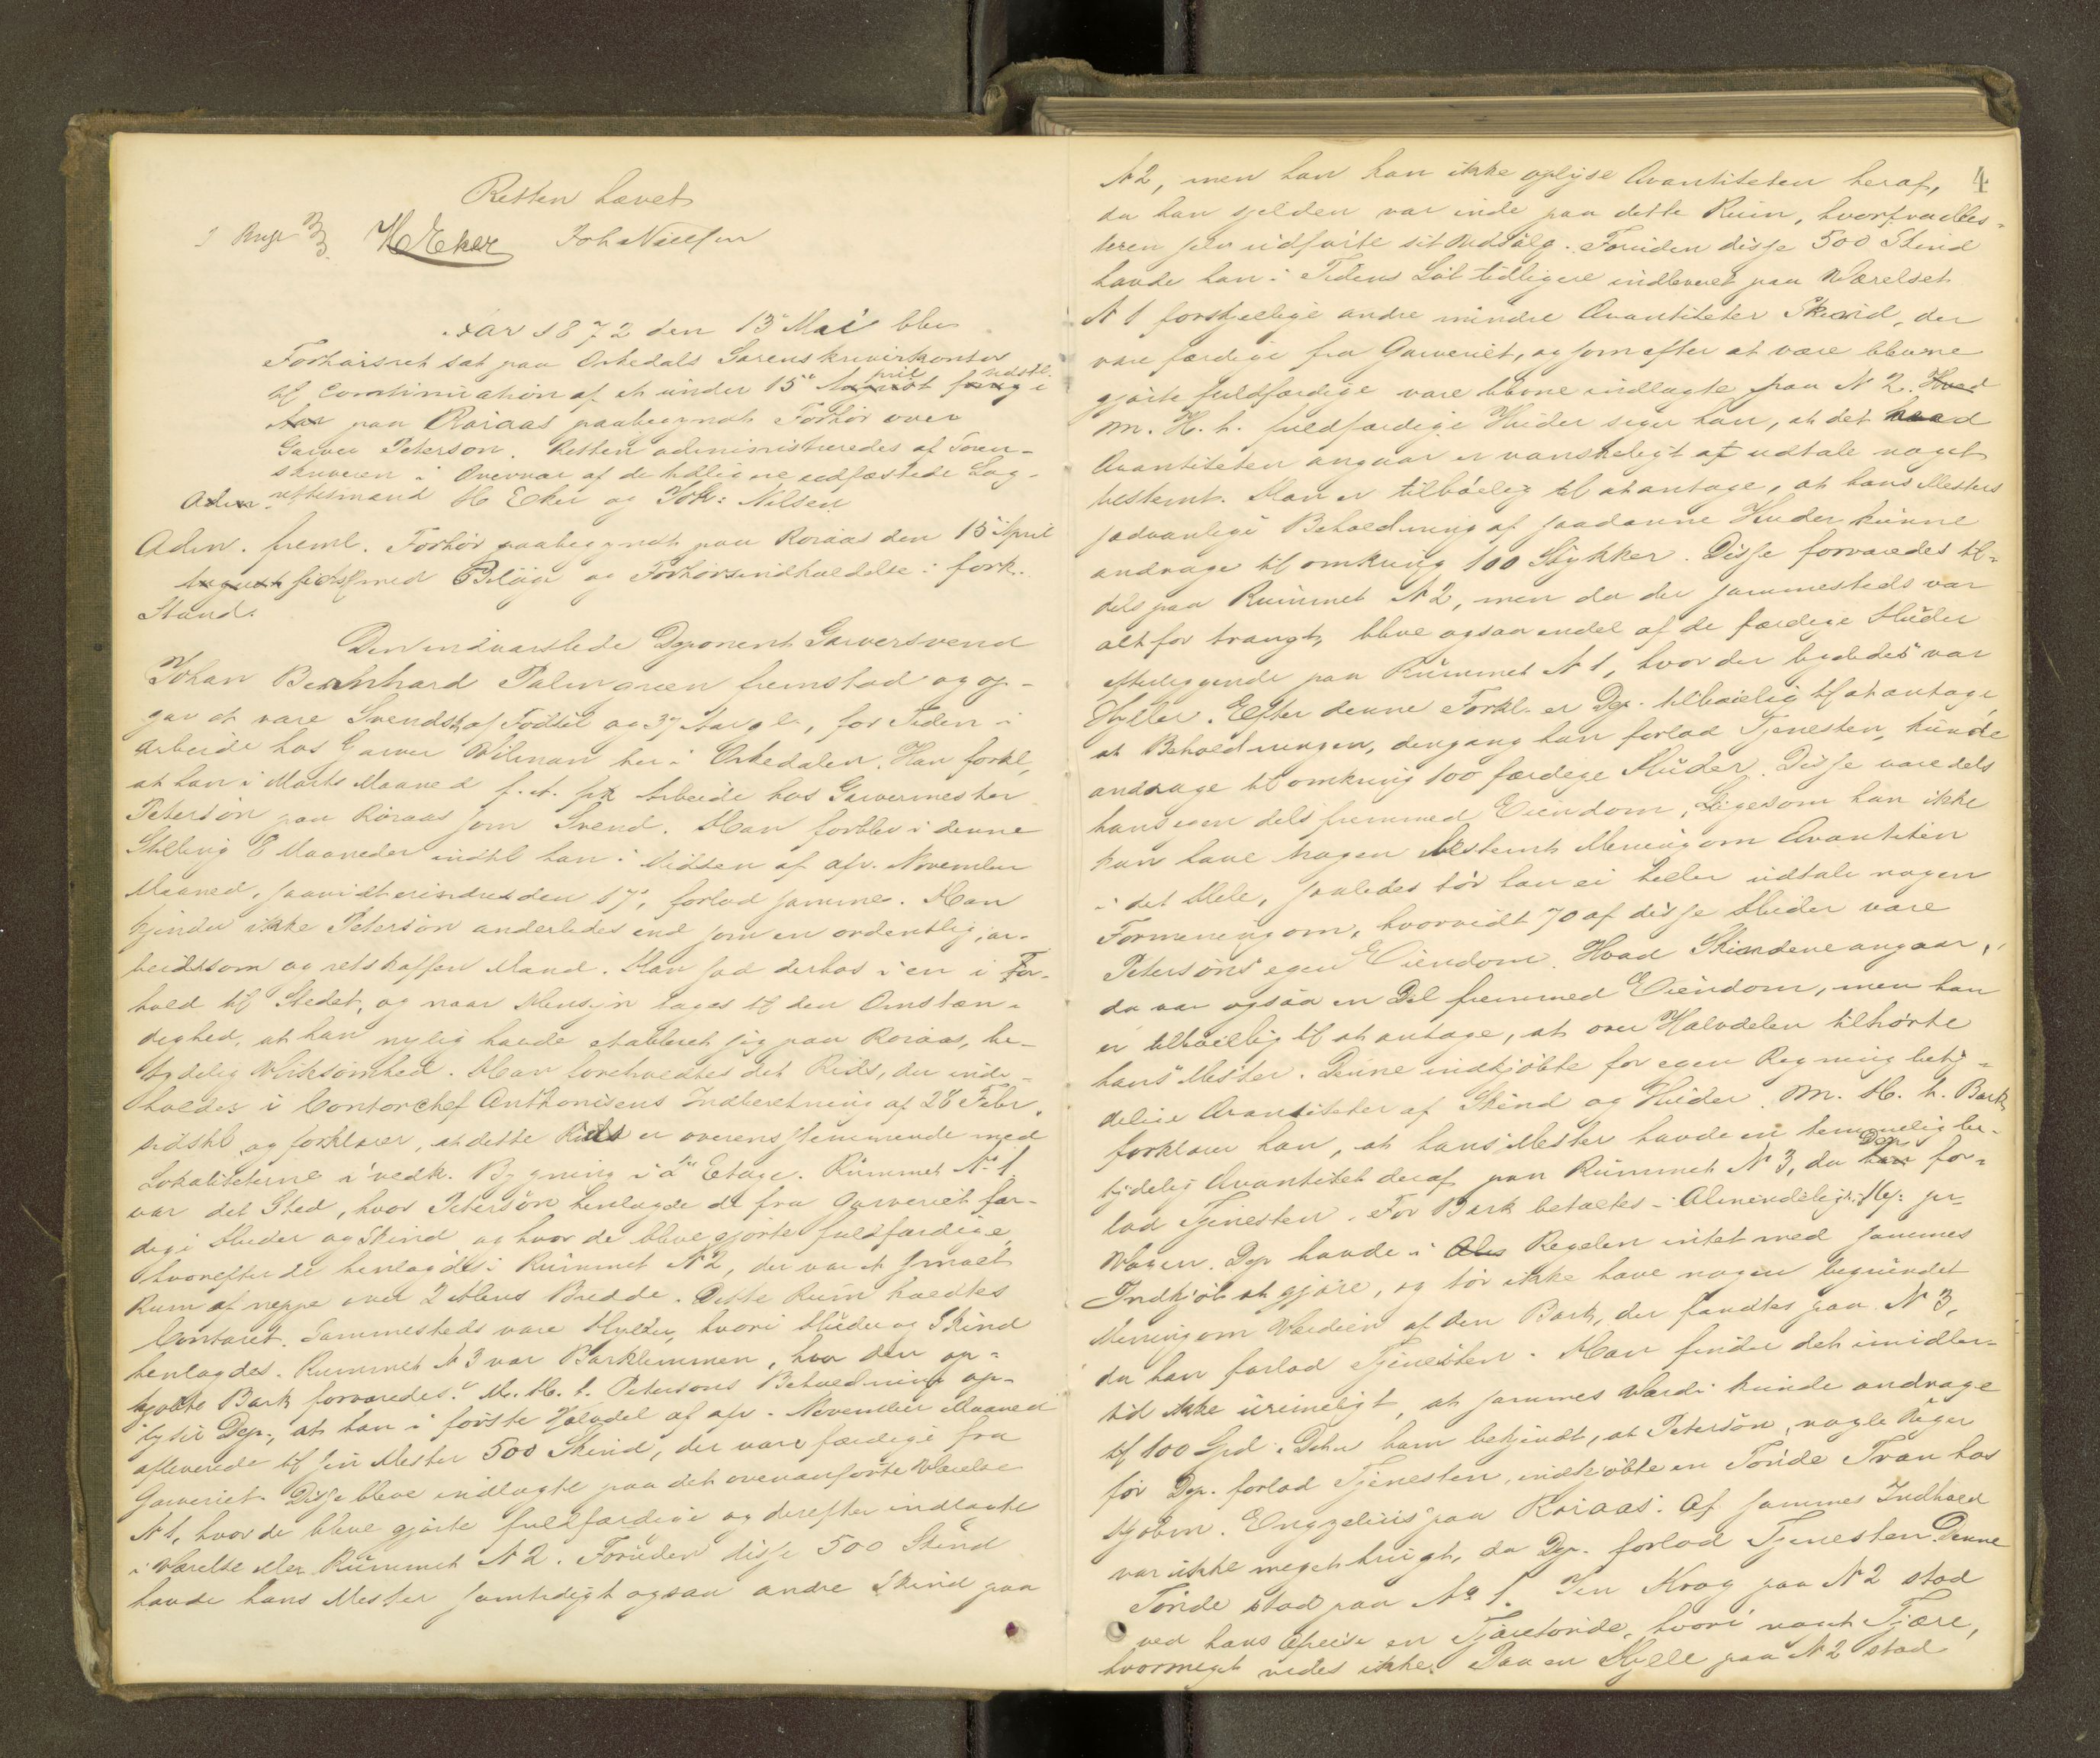 Retten hævet
H Eker Joh Nielsen
Aar 1872 den 13 Mai blev
Forhørsret sat paa Orkedals Sorenskriverkontor
til Continuation af et under 15de April sidstl.
paa Røraas paabegyndt Forhør over
Garver Peterson. Retten administreredes af Soren-
skriveren i Overvær af de tidligere edfæstede Lag-
rettesmænd H Eker og Joh: Nilsen
Adm. freml. Forhør paabegyndt paa Røraas den 15 April
sidstl. med Bilage og Forhørsindkaldelse i fork.
Stand.
Den indvarslede Deponent Garversvend
Johan Bernhard Palmgren fremstod og op-
gav at være Svensk af Fødsel og 37 Aar gl., for Tiden i
Arbeide hos Garver Wilman her i Orkedalen. Han forkl.,
at han i Marts Maaned f. A. fik Arbeide hos Garvermester
Peterson paa Røraas som Svend. Han forblev i denne
Stilling 8 Maaneder indtil han i Midten af afv. November
Maaned, saavidt erindres den 17, forlod samme. Han
kjender ikke Peterson anderledes end som en ordentlig, ar-
beidsom og retskaffen Mand. Han sad derhos i en i For-
hold til Stedet, og naar Hensyn tages til den Omstæn-
dighed, at han nylig havde etableret sig paa Røraas, be-
tydelig Virksomhed. Han foreholdtes det Rids, der inde-
holdes i Contorchef Anthonisens Indberetning af 28 Febr.
sidstl. og forklarer, at dette Rids er overensstemmende med
Lokaliteterne i vedk. Bygning i 2den Etage. Rummet No 1
var det Sted, hvor Peterson henlagde de fra Garveriet fær-
dige Huder og Skind og hvor de bleve gjorte fuldfærdige,
hvorefter de henlagdes i Rummet N 2, der var et smalt
Rum af neppe over 2 Alens Bredde. Dette Rum kaldtes
Contoret. Sammesteds vare Hylder, hvori Huder og Skind
henlagdes. Rummet N 3 var Barklemmen, hvor den op-
kjøbte Bark forvaredes. M. H. t. Petersons Beholdning op-
lyser Dep., at han i første Halvdel af afv. November Maaned
afleverede til sin Mester 500 Skind, der vare færdige fra
Garveriet. Disse bleve indlagte paa det ovenanførte Værelse
N 1, hvor de bleve gjorte fuldfærdige og derefter indlagte
i Værelse eller Rummet N 2. Foruden disse 500 Skind
havde hans Mester samtidigt ogsaa andre Skind paa
4
N 2, men han kan ikke oplyse Qvantiteten heraf,
da han sjelden var inde paa dette Rum, hvorfra Mes-
teren selv udførte sit Udsalg. Foruden disse 500 Skind
havde han i Tidens Løb tidligere indleveret paa Værelset
N 1 forskjellige andre mindre Qvantiteter Skind, der
vare færdige fra Garveriet, og som efter at være blevne
gjorte fuldfærdige vare blevne indlagte paa N 2. Hvad
M. H. t. fuldfærdige Huder siger han, at det hvad
Qvantiteten angaar er vanskeligt at udtale noget
bestemt. Han er tilbøielig til at antage, at hans Mesters
sædvanlige Beholdning af saadanne Huder kunne
andrage til omkring 100 Stykker. Disse forvaredes til-
dels paa Rummet N 2, men da der sammesteds var
alt for trangt, bleve ogsaa endel af de færdige Huder
efterliggende paa Rummet N 1, hvor der ligeledes var
Hylder. Efter denne Forkl. er Dep. tilbøielig til at antage,
at Beholdningen, dengang han forlod Tjenesten, kunde
andrage til omkring 100 færdige Huder. Disse vare dels
hans egen dels fremmed Eiendom. Ligesom han ikke
kan have nogen bestemt Mening om Qvantiteten
i det Hele, saaledes tør han ei heller udtale nogen
Formening om, hvorvidt 70 af disse Huder vare
Petersons egen Eiendom. Hvad Skindene angaar,
da var ogsaa en Del fremmed Eiendom, men han
er tilbøielig til at antage, at over Halvdelen tilhørte
hans Mester. Denne indkjøbte for egen Regning bety-
delige Qvantiteter af Skind og Huder. M. H. t. Bark
forklarer han, at hans Mester havde en temmelig be-
tydelig Qvantitet deraf paa Rummet N 3, da Dep. for-
lod Tjenesten. For Bark betaltes i Almindelighed pr
Vogen. Dep havde i Regelen intet med sammes
Indkjøb at gjøre, og tør ikke have nogen begrundet
Mening om Værdien af den Bark, der fandtes paa N 3,
da han forlod Tjenesten. Han finder det imidler-
tid ikke urimeligt, at sammes Værdi kunde andrage
til 100 Spd. Det er ham bekjendt, at Peterson, nogle Uger
før Dep. forlod Tjenesten, indkjøbte en Tønde Tran hos
Kjøbm. Engzelius paa Røraas. Af sammes Indhold
var ikke meget brugt, da Dep. forlod Tjenesten. Denne
Tønde stod paa No 1. I en Krog paa N 2 stod
ved hans Afreise en Tjæretønde, hvori noget Tjære,
hvormeget vides ikke. Paa en Hylle paa N 2 stod